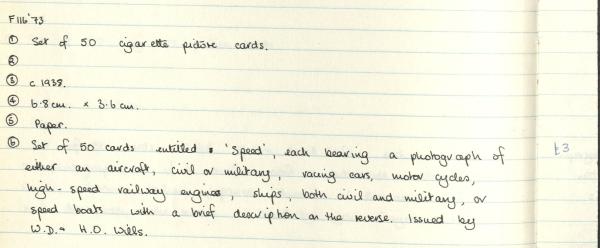 F116'73
① Set of 50 cigarette picture cards.
②
③ c 1938.
④ 6.8cm. x 3.6cm.
⑤ Paper.
⑥ Set of 50 cards entitled 'Speed', each bearing a photograph of £3
either an aircraft, civil or military, racing cars, motor cycles,
high-speed railway engines, ships, both civil and military, or
speed boats with a brief description on the reverse. Issued by
W.D. & H.O. Wills.